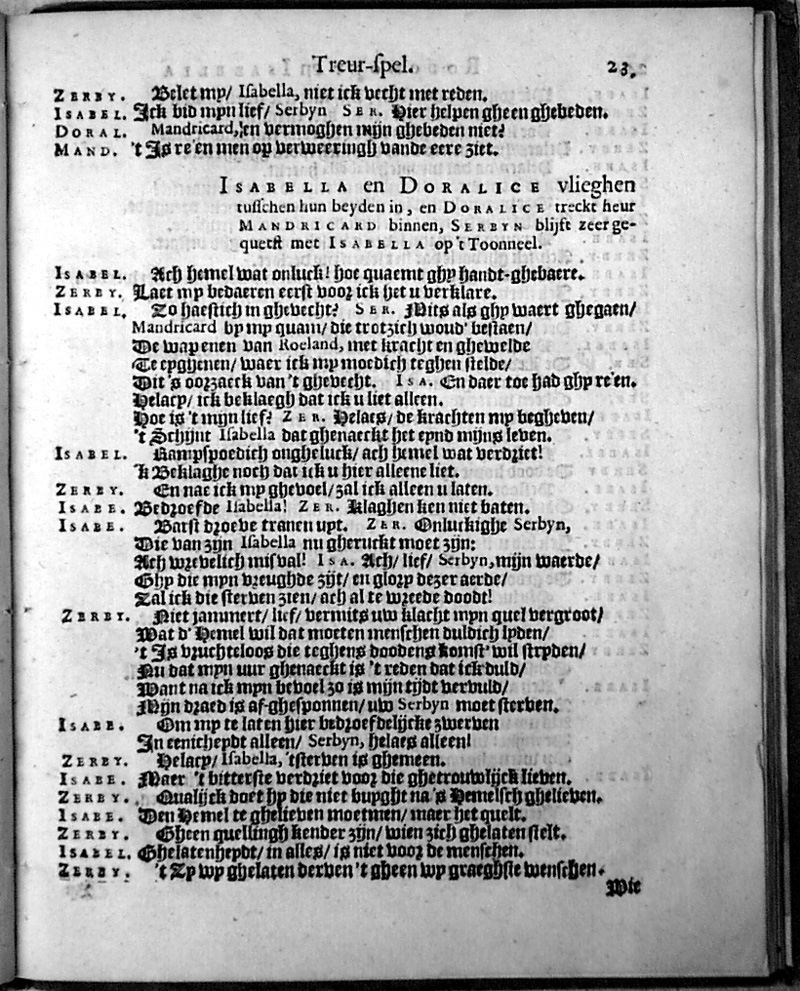 Treur-ſpel. 23.
ZERBY. Belet my/ Iſabella, niet ick vecht met reden.
ISABEL. Ick bid myn lief/ Serbyn SER. Hier helpen gheen ghebeden.
DORAL. Mandricard, en vermoghen mijn ghebeden niet?
MAND. 't Is re'en men op verweeringh vande eere ziet.
ISABELLA en DORALICE vlieghen
tuſſchen hun beyden in, en DORALICE treckt heur
MANDRICARD binnen, SERBYN blijft zeer ge-
quetſt met ISABELLA op 't Toonneel.
ISABEL. Ach hemel wat onluck! hoe quaemt ghy handt-ghebaere.
ZERBY. Laet my bedaeren eerst voor ick het u verklare.
ISABEL. Zo haestich in ghevecht? SER. Mits als ghy waert ghegaen/
Mandricard by my quam/ die trotzich woud' bestaen/
De wapenen van Roeland, met kracht en ghewelde
Te eyghenen/ waer ick my moedich teghen stelde/
Dit 's oorzaeck van 't ghevecht. ISA. En daer toe had ghy re'en.
Helacy/ ick beklaegh dat ick u liet alleen.
Hoe is 't mijn lief? ZER. Helaes/ de krachten my begheven/
't Schijnt Iſabella dat ghenaeckt het eynd mijns leven.
ISABEL. Rampspoedich ongheluck/ ach hemel wat verdriet!
'k Beklaghe noch dat ick u hier alleene liet.
ZERBY. En nae ick my ghevoel/ zal ick alleen u laten.
ISABE. Bedroefde Iſabella! ZER. Klaghen ken niet baten.
ISABE. Barst droeve tranen uyt. ZER. Onluckighe Serbyn,
Die van zijn Iſabella nu gheruckt moet zijn:
Ach wrevelich misval! ISA. Ach/ lief/ Serbyn, mijn waerde/
Ghy die myn vreughde zijt/ en glory dezer aerde/
Zal ick die sterven zien/ ach al te wreede doodt!
ZERBY. Niet jammert/ lief/ vermits uw klacht myn quel vergroot/
Wat d' Hemel wil dat moeten menschen duldich lyden/
't Is vruchteloos die teghens doodens komst' wil stryden/
Nu dat myn uur ghenaeckt is 't reden dat ick duld/
Want na ick myn bevoel zo is mijn tijdt vervuld/
Mijn draed is af-ghesponnen/ uw Serbyn moet sterven.
ISABE. Om my te laten hier bedroefdelijcke zwerven
In eenicheydt alleen/ Serbyn, helaes alleen!
ZERBY. Helacy/ Iſabella, 'tsterven is ghemeen.
ISABE. Maer 't bitterste verdriet voor die ghetrouwlijck lieven.
ZERBY. Qualijck doet hy die niet buyght na 's Hemelsch ghelieven.
ISABE. Den Hemel te ghelieven moetmen/ maer het quelt.
ZERBY. Gheen quellingh kender zijn/ wien zich ghelaten stelt.
ISABEL. Ghelatenheydt/ in alles/ is niet voor de menschen.
ZERBY. 't Zy wy ghelaten derven 't gheen wy graeghste wenschen.
Wie